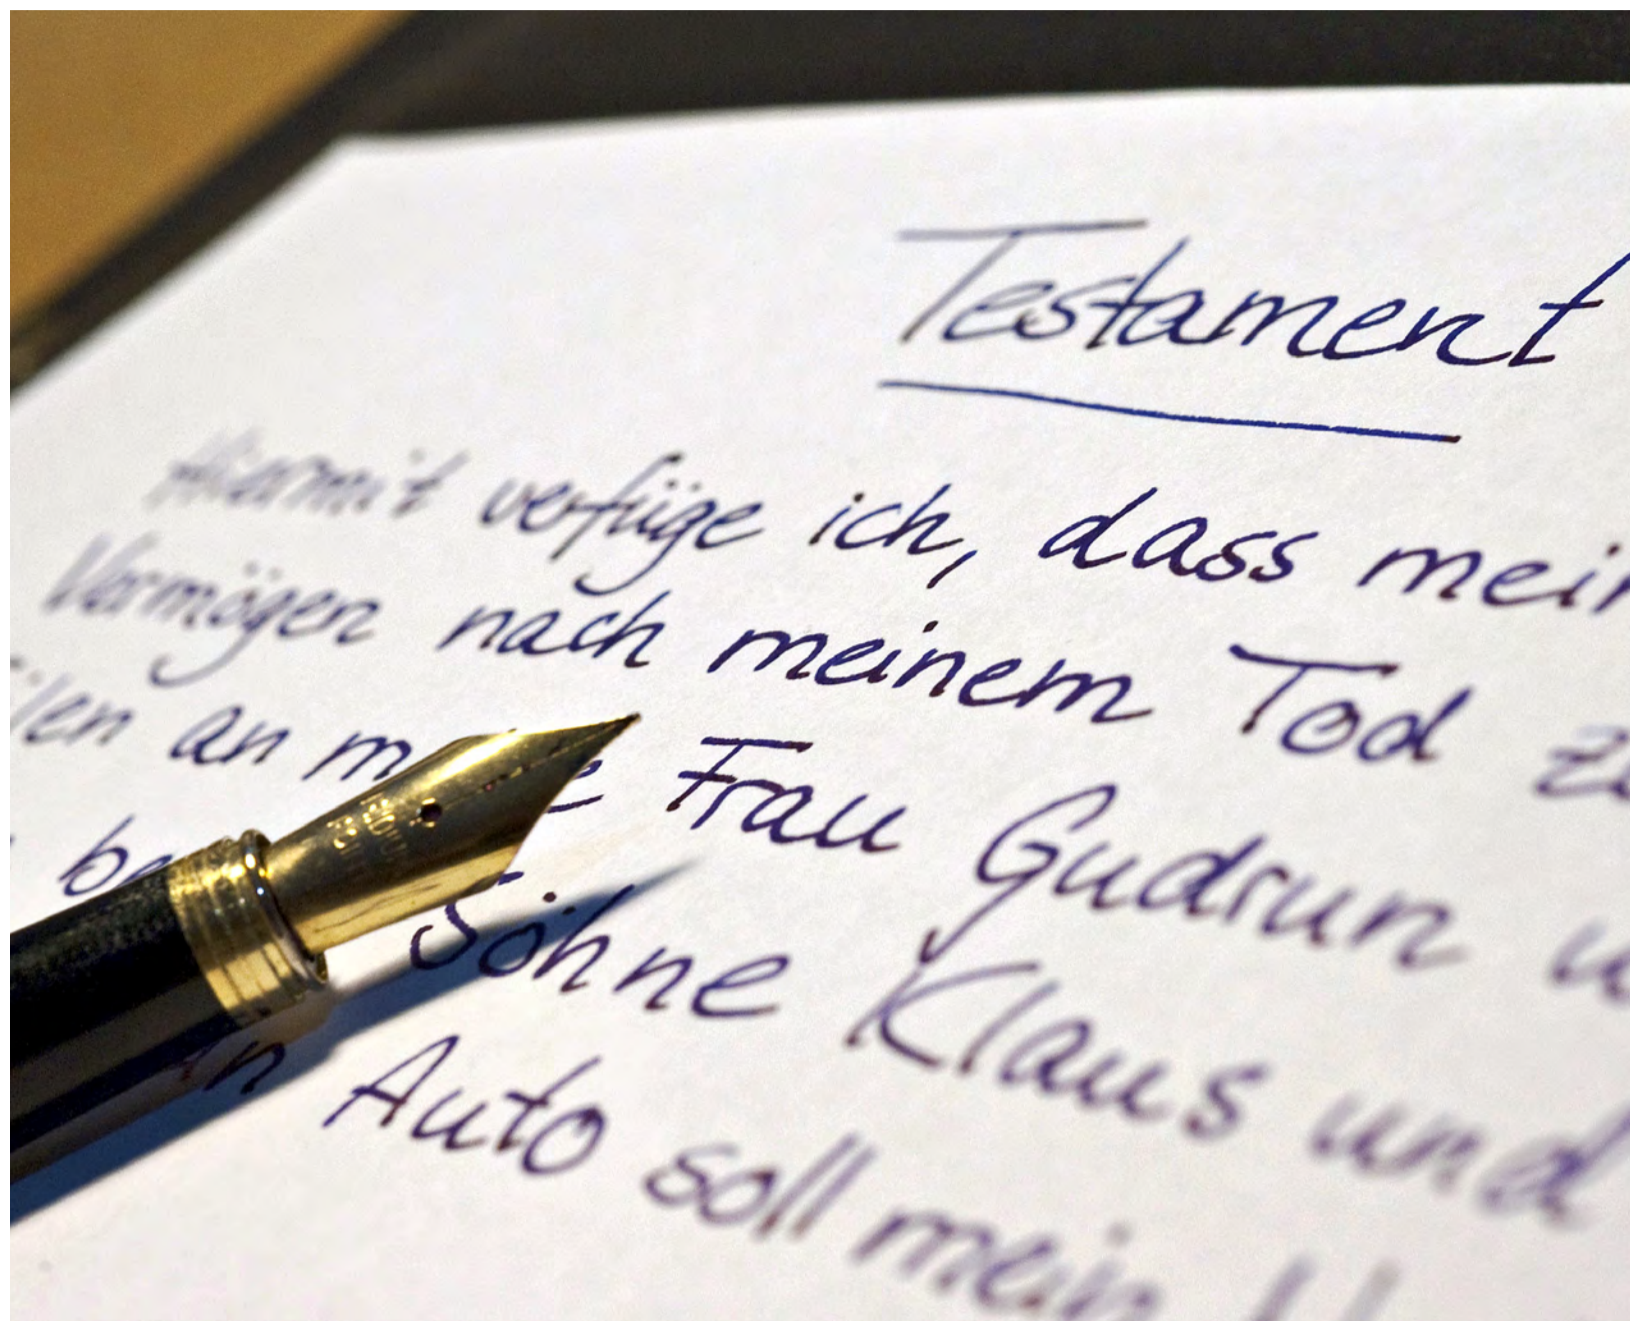 Testament
Hiermit verfüge ich, dass mein
Vermögen nach meinem Tod
an Frau Gudrun
Söhne Klaus und
Auto soll mein